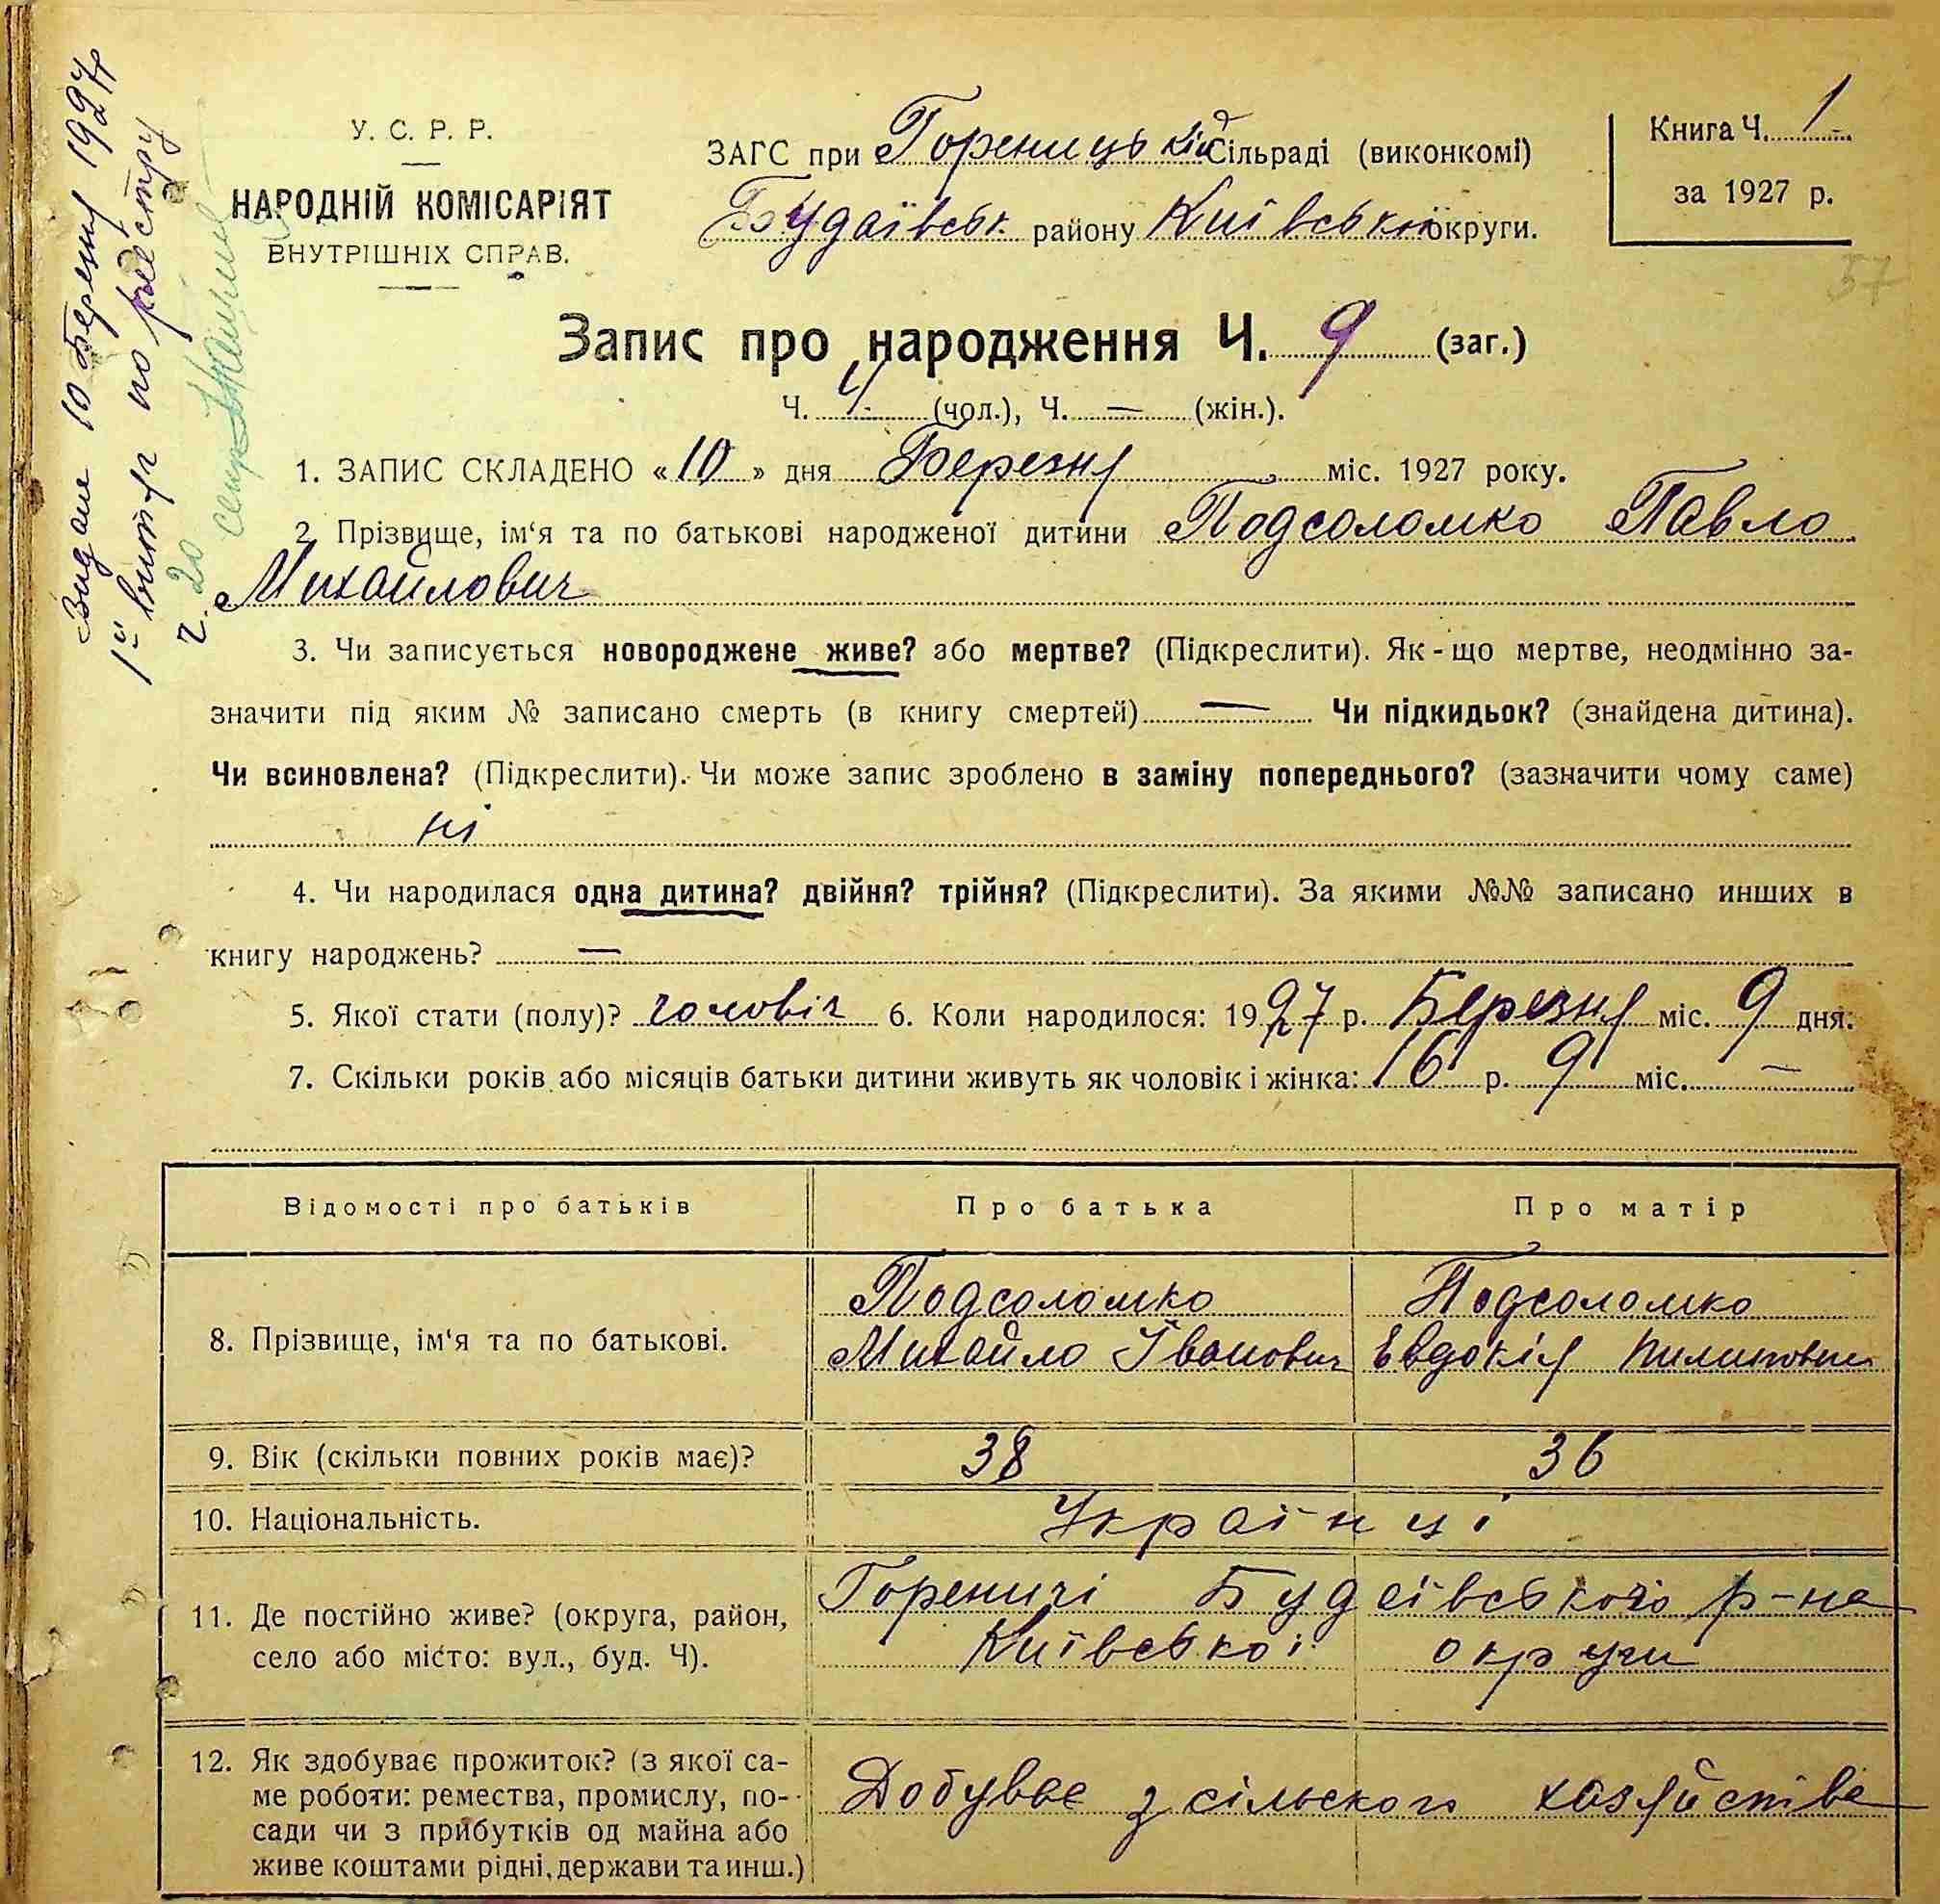 У. С. Р. Р.
НАРОДНІЙ КОМІСАРІЯТ
ВНУТРІШНІХ СПРАВ.
ЗАГС при Гореницькій Сільраді (виконкомі)
Будаївськ. району Київської округи.
Книга Ч. 1
за 1927 р.
57
Видане 10 Березня 1927 р
1й витяг по реєстру
ч. 20
Запис про народження Ч. 9 (заг.)
Ч. 4 (чол.), Ч. — (жін.).
1. ЗАПИС СКЛАДЕНО «10» дня Березня міс. 1927 року.
2. Прізвище, ім‘я та по батькові народженої дитини Подсоломко Павло
Михайлович
3. Чи записується новороджене живе? або мертве? (Підкреслити). Як-що мертве, неодмінно за-
значити під яким № записано смерть (в книгу смертей) — Чи підкидьок? (знайдена дитина).
Чи всиновлена? (Підкреслити). Чи може запис зроблено в заміну попереднього? (зазначити чому саме)
ні
4. Чи народилася одна дитина? двійня? трійня? (Підкреслити). За якими №№ записано инших в
книгу народжень? —
5. Якої стати (полу)? чоловіч 6. Коли народилося: 1927 р. Березня міс. 9 дня.
7. Скільки років або місяців батьки дитини живуть як чоловік і жінка: 16 р. 9 міс. —
Відомості про батьків Про батька Про матір
8. Прізвище, ім‘я та по батькові.
Подсоломко Подсоломко
Михайло Іванович Евдокія Пилиповна
9. Вік (скільки повних років має)? 38 36
10. Національність. Українці
11. Де постійно живе? (округа, район,
село або місто: вул., буд. Ч).
Гореничі Будаївського р-на
Київської округи
12. Як здобуває прожиток? (з якої са-
ме роботи: ремества, промислу, по-
сади чи з прибутків од майна або
живе коштами рідні, держави та инш.)
Добуває з сільского хазяйства